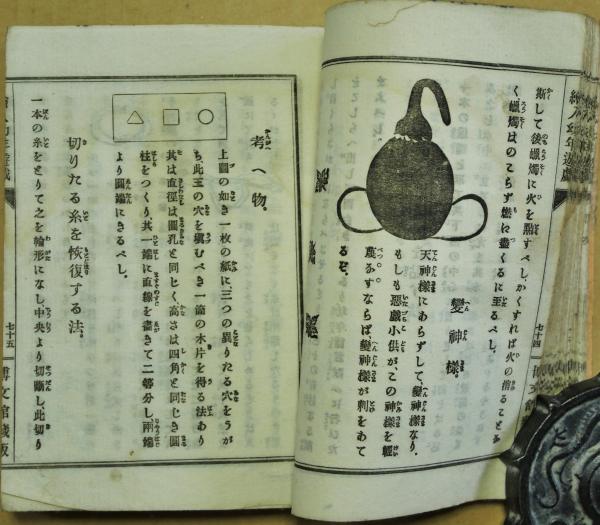 斯して後蠟燭に火を點すべし、かくすれば火の揩ることな
く蠟燭はのこらず燃に盡くるに至るべし、
變神樣。
天神樣にあらずして、變神樣なり、
もしも惡戲小供が、この神樣を輕
蔑すならば、變神樣が刺をあて
るぞ、
七十四
考へ物。
上圖の如き一枚の紙に三つの異りたる穴をうが
ち、此三の穴を塡むべき一箇の木片を得る法あり
其は直徑は圓孔と同じく、高さは四角と同じき圓
柱をつくり其一端に直線を畫きて二等分し、兩端
より圓端にきるべし、
切りたる糸を恢復する法。
一本の糸をとりて之を輪形になし中央より切斷し、此切り
七十五
博文館藏版